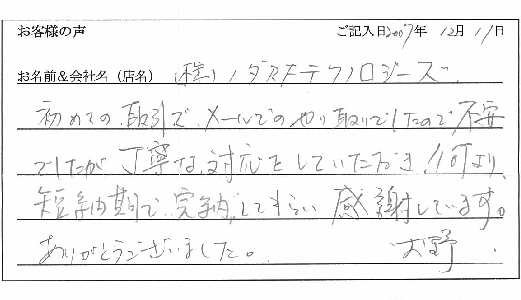 お客様の声 ご記入日2007年 12月 11日
お名前&会社名(店名) (株)ノダスタテクノロジーズ
初めての取引で、メールでのやり取りでしたので不安
でしたが丁寧な対応をしていただき、何より、
短納期で完納してもらい感謝しています。
ありがとうございました。 大野